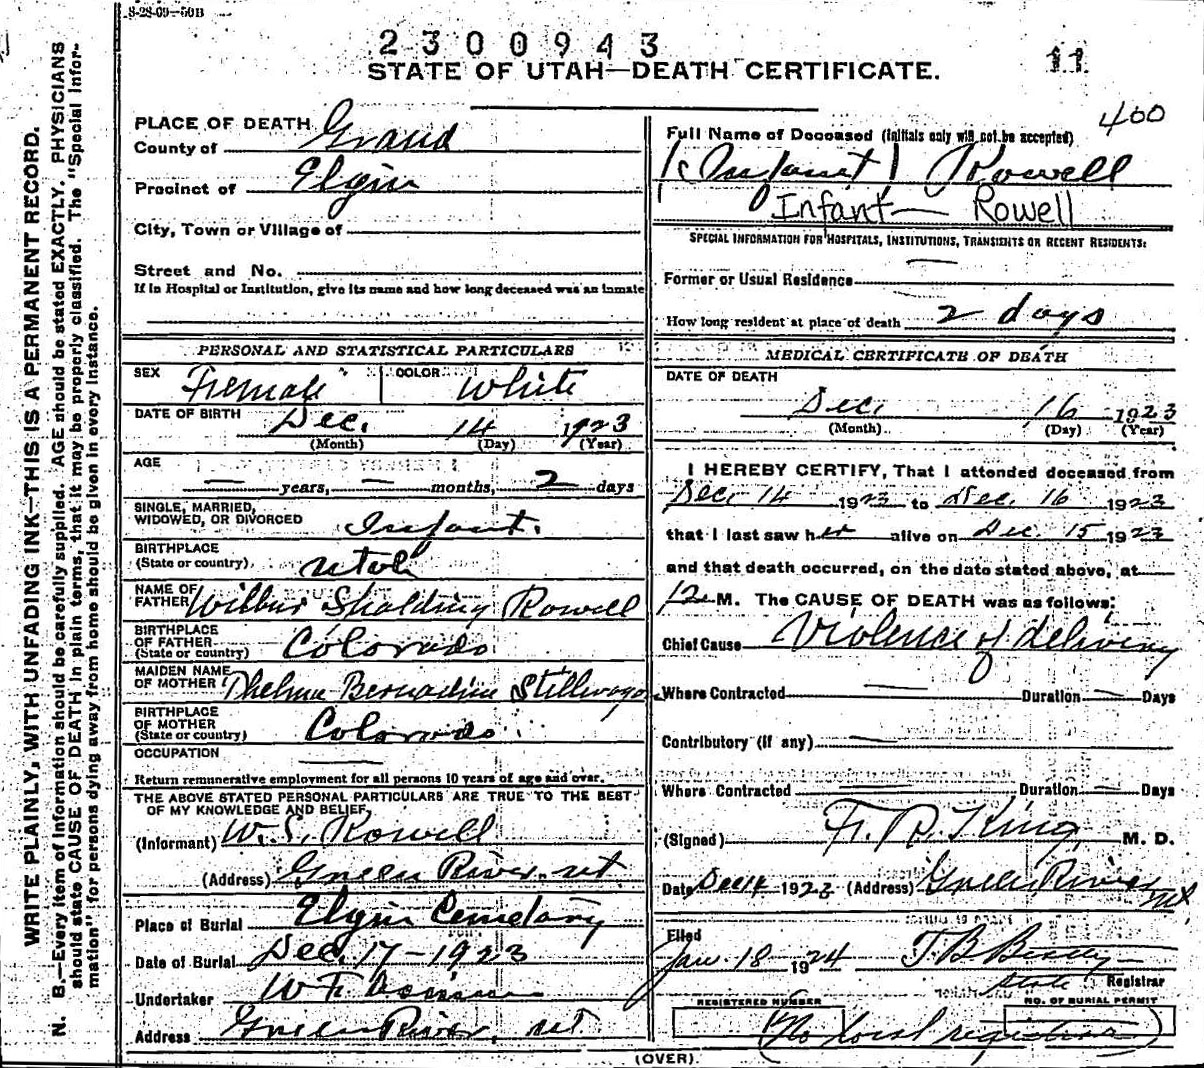 8-28-09-50B
2300943
STATE OF UTAH—DEATH CERTIFICATE.
11
400
WRITE PLAINLY, WITH UNFADING INK—THIS IS A PERMANENT RECORD.
N. B.—Every item of information should be carefully supplied. AGE should be stated EXACTLY. PHYSICIANS
should state CAUSE OF DEATH in plain terms, that it may be properly classified. The "Special Infor-
mation" for persons dying away from home should be given in every instance.
PLACE OF DEATH
County of Grand
Precinct of Elgin
City, Town or Village of
Street and No.
If in Hospital or Institution, give its name and how long deceased was an inmate
PERSONAL AND STATISTICAL PARTICULARS
SEX Female COLOR White
DATE OF BIRTH Dec. 14 1923
(Month) (Day) (Year)
AGE
— years, — months, 2 days
SINGLE, MARRIED,
WIDOWED, OR DIVORCED Infant.
BIRTHPLACE
(State or country) Utah
NAME OF
FATHER Wilbur Shalding Rowell
BIRTHPLACE
OF FATHER
(State or country) Colorado
MAIDEN NAME
OF MOTHER Thelma Bernadine Stillwagon
BIRTHPLACE
OF MOTHER
(State or country) Colorado
OCCUPATION —
Return remunerative employment for all persons 10 years of age and over.
THE ABOVE STATED PERSONAL PARTICULARS ARE TRUE TO THE BEST
OF MY KNOWLEDGE AND BELIEF
(Informant) W. S. Rowell
(Address) Green River, ut
Place of Burial Elgin Cemetary
Date of Burial Dec. 17-1923
Undertaker W F
Address Green River, ut
Full Name of Deceased (Initials only will not be accepted)
(Infant) Rowell
Infant — Rowell
SPECIAL INFORMATION FOR HOSPITALS, INSTITUTIONS, TRANSIENTS OR RECENT RESIDENTS:
Former or Usual Residence —
How long resident at place of death 2 days
MEDICAL CERTIFICATE OF DEATH
DATE OF DEATH
Dec. 16 1923
(Month) (Day) (Year)
I HEREBY CERTIFY, That I attended deceased from
Dec. 14 1923 to Dec. 16 1923
that I last saw her alive on Dec. 15 1923
and that death occurred, on the date stated above, at
12 M. The CAUSE OF DEATH was as follows:
Chief Cause Violence of delivery
Where Contracted — Duration — Days
Contributory (if any) —
Where Contracted — Duration — Days
(Signed) F. R. King, M. D.
Date Dec 14 1923 (Address) Green River ut
Filed
Jan. 18 1924 T. B. Beatty
State Registrar
REGISTERED NUMBER NO. OF BURIAL PERMIT
(No local registrar)
(OVER)